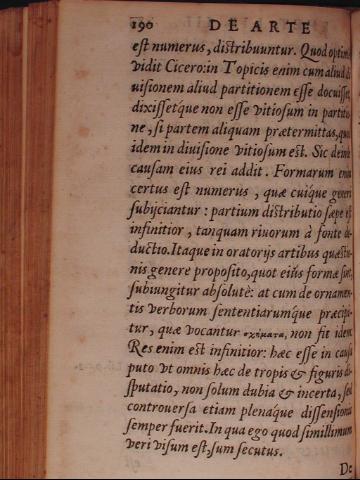 190 DE ARTE
est numerus, distribuuntur. Quod optimè
vidit Cicero: in Topicis enim cum aliud di-
uisionem aliud partitionem esse docuisset,
dixissetque non esse vitiosum in partitio
ne, si partem aliquam prætermittas, quod
idem in diuisione vitiosum est. Sic deinde
causam eius rei addit. Formarum enim
certus est numerus, quæ cuiq́ue generi
subijciantur: partium distributio sæpe est
infinitior, tanquam riuorum à fonte de-
ductio. Itaque in oratorijs artibus quæstio-
nis genere proposito, quot eius formæ sint,
subiungitur absolutè: at cum de ornamen-
tis verborum sententiarumq́ue præcipi-
tur, quæ vocantur σχήματα, non fit idem.
Res enim est infinitior: hæc esse in causa
puto vt omnis hæc de tropis & figuris di-
sputatio, non solum dubia & incerta, sed
controuersa etiam plenaque dissensionis
semper fuerit. In qua ego quod simillimum
veri visum est, sum secutus.
De